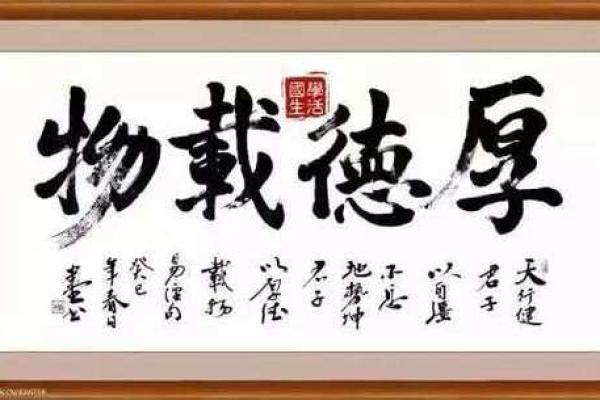 厚德載物
國學
生活
天行健
君子
以自強
不息
地勢坤
君子
以厚德
載物
易經句
癸巳
年春日